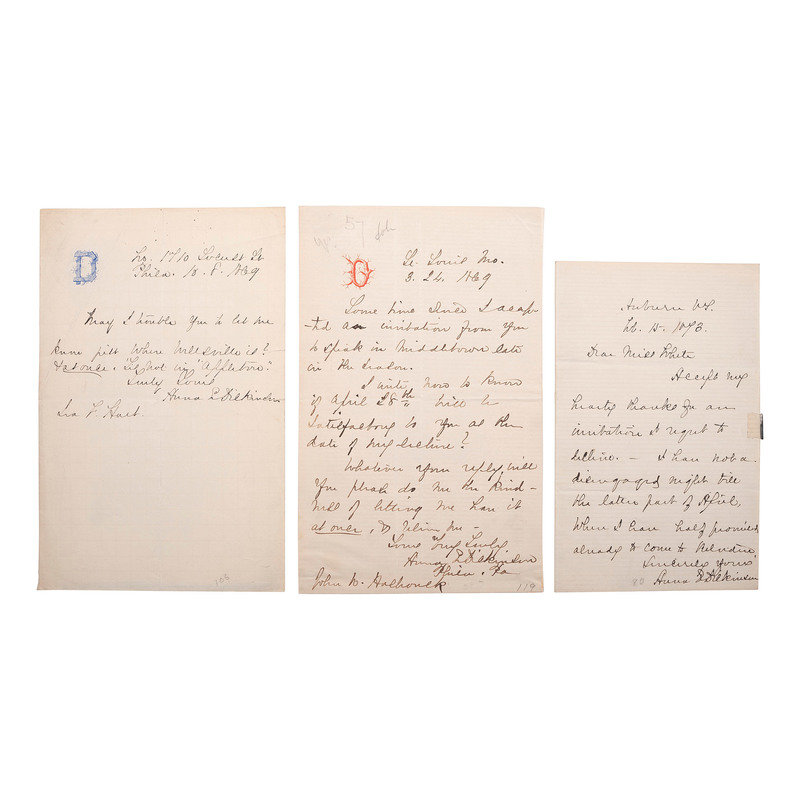 D
No. 1710 Locust St
Phila. 10. 8. 1869
May I trouble you to let me
know just where Wellsville is? –
& at once.
Truly Yours
Anna E Dickinson
Ira F. Hart.
106
57
D
St. Louis Mo.
3. 24. 1869
Some time since I accep-
-ted an invitation from you
to speak in Middletown late
in the season.
I write now to know
if April 28th will be
satisfactory to you as the
date of my lecture?
Whatever your reply, will
you please do me the kind-
ness of letting me have it
at once, & believe me –
Yours Very Truly
Anna E Dickinson
Phila. Pa
John W.
119
Auburn
15. 1873.
Dear Miss White
Accept my
hearty thanks for an
invitation I regret to
decline. – I have not a
disengaged night till
the latter part of April,
when I have half promised
already to come to
Sincerely Yours
Anna E Dickinson
80